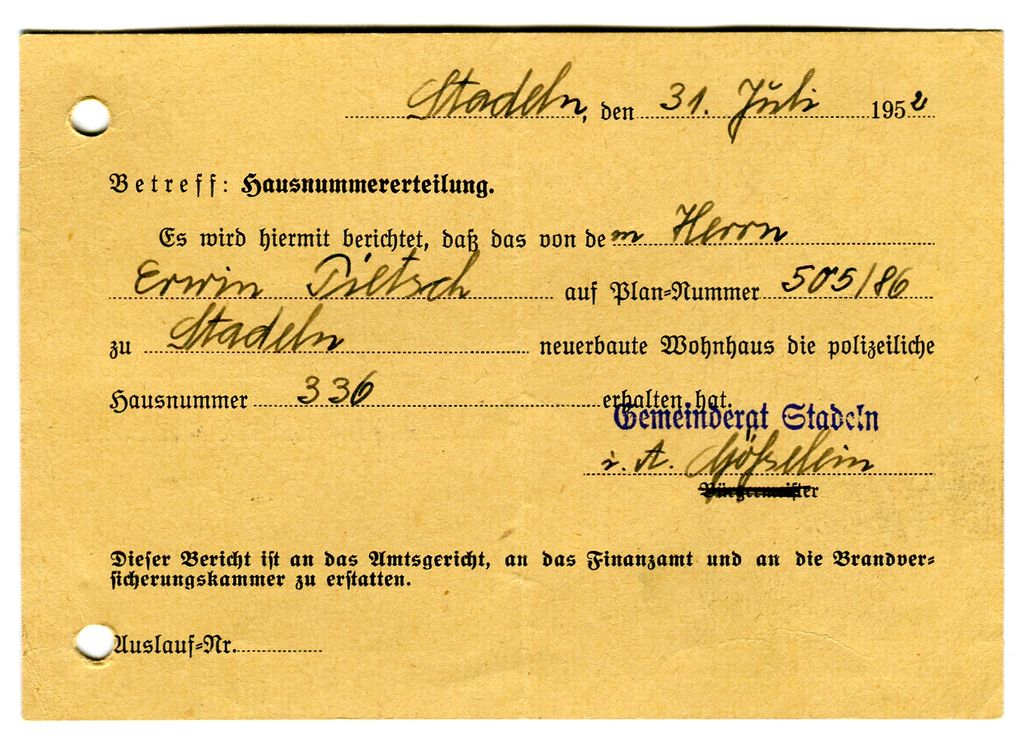 Stadeln, den 31. Juli 1952
Betreff: Hausnummererteilung.
Es wird hiermit berichtet, daß das von dem Herrn
Erwin Pietsch auf Plan-Nummer 505/86
zu Stadeln neuerbaute Wohnhaus die polizeiliche
Hausnummer 336 erhalten hat.
Gemeinderat Stadeln
i. A.
Bürgermeister
Dieser Bericht ist an das Amtsgericht, an das Finanzamt und an die Brandver-
sicherungskammer zu erstatten.
Auslauf-Nr.